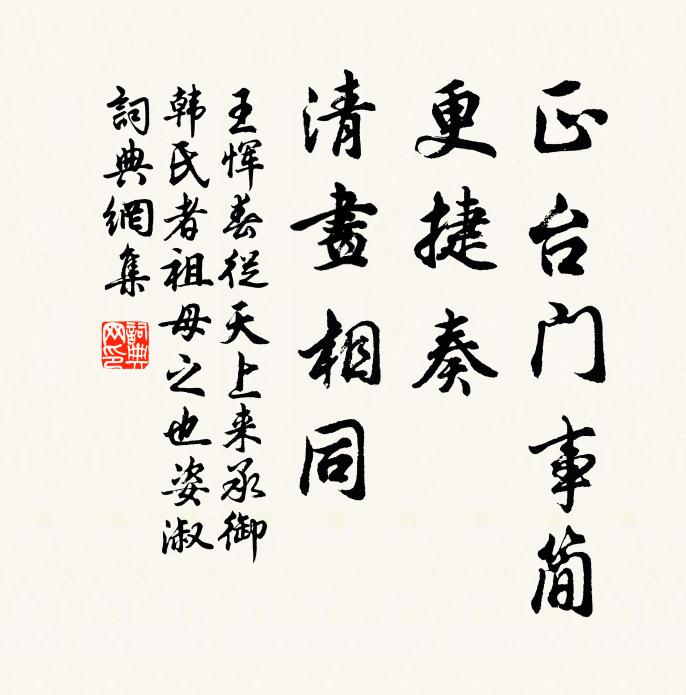 正台门事简
更捷奏
清晝相同
王惲春從天上来承御
韩氏者祖母之也姿淑
詞典網集
詞典网印